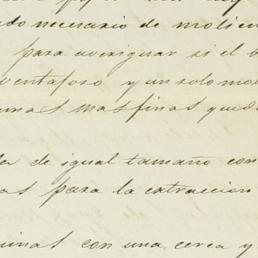 do necesario de molien
para averiguar si el b
ventaforo y un solo mo
mas mas finas qued
da de igual tamaño con
as para la extraccion
uinas con una cerca y